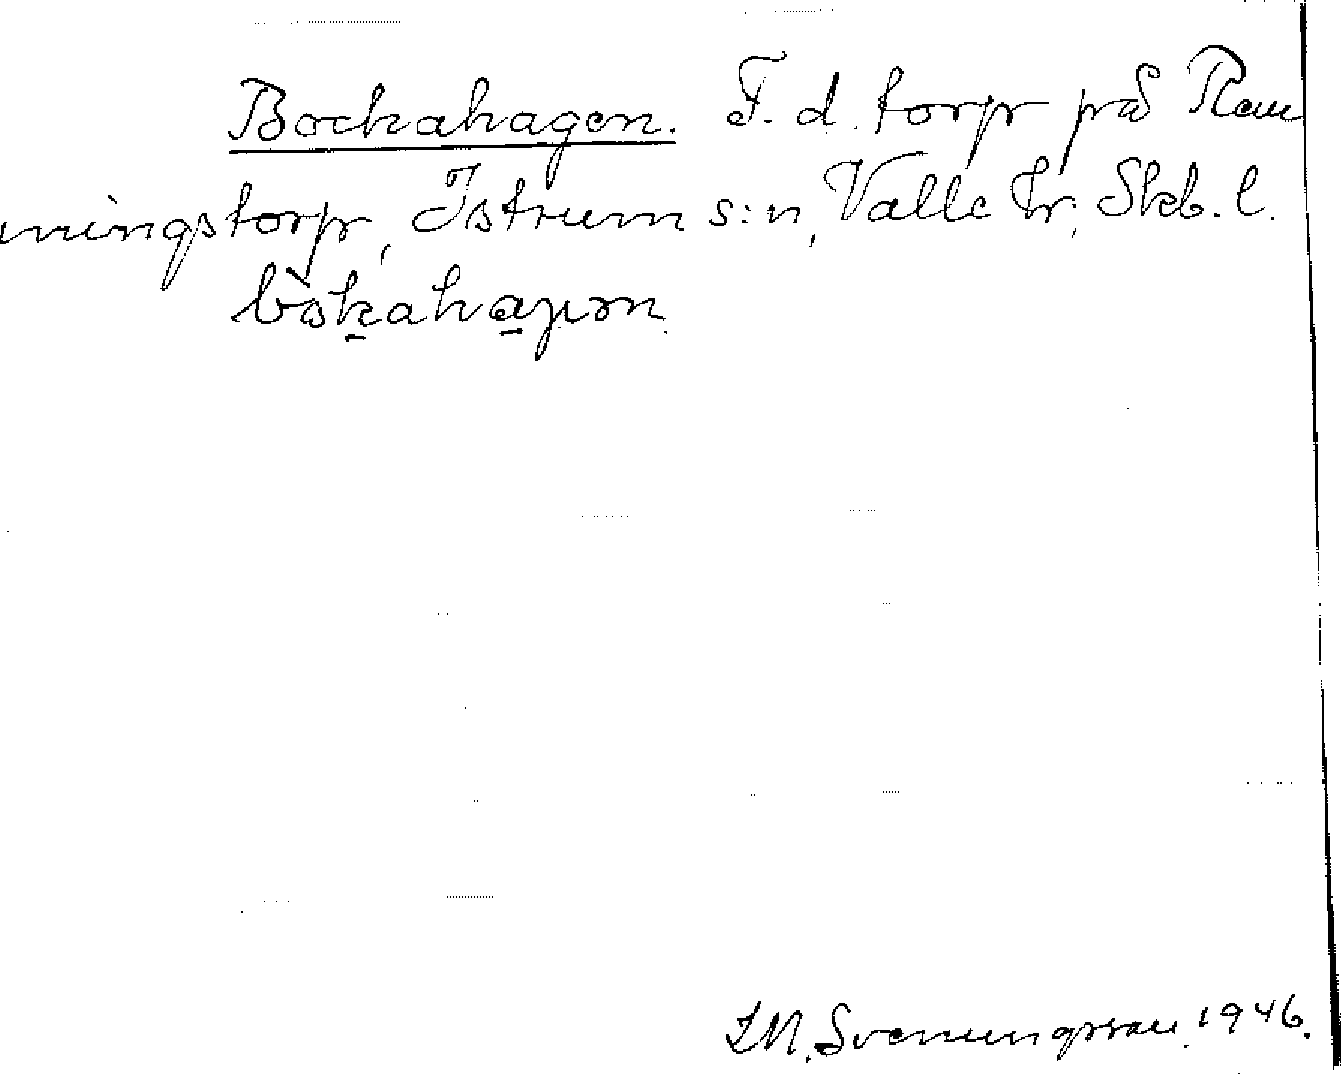 Bockahagen. F. d. torp på Ran
ningstorp, Istrum s:n, Valle hr, Skb. l.
bòkahagən
I. M. Svenningsson 1946.